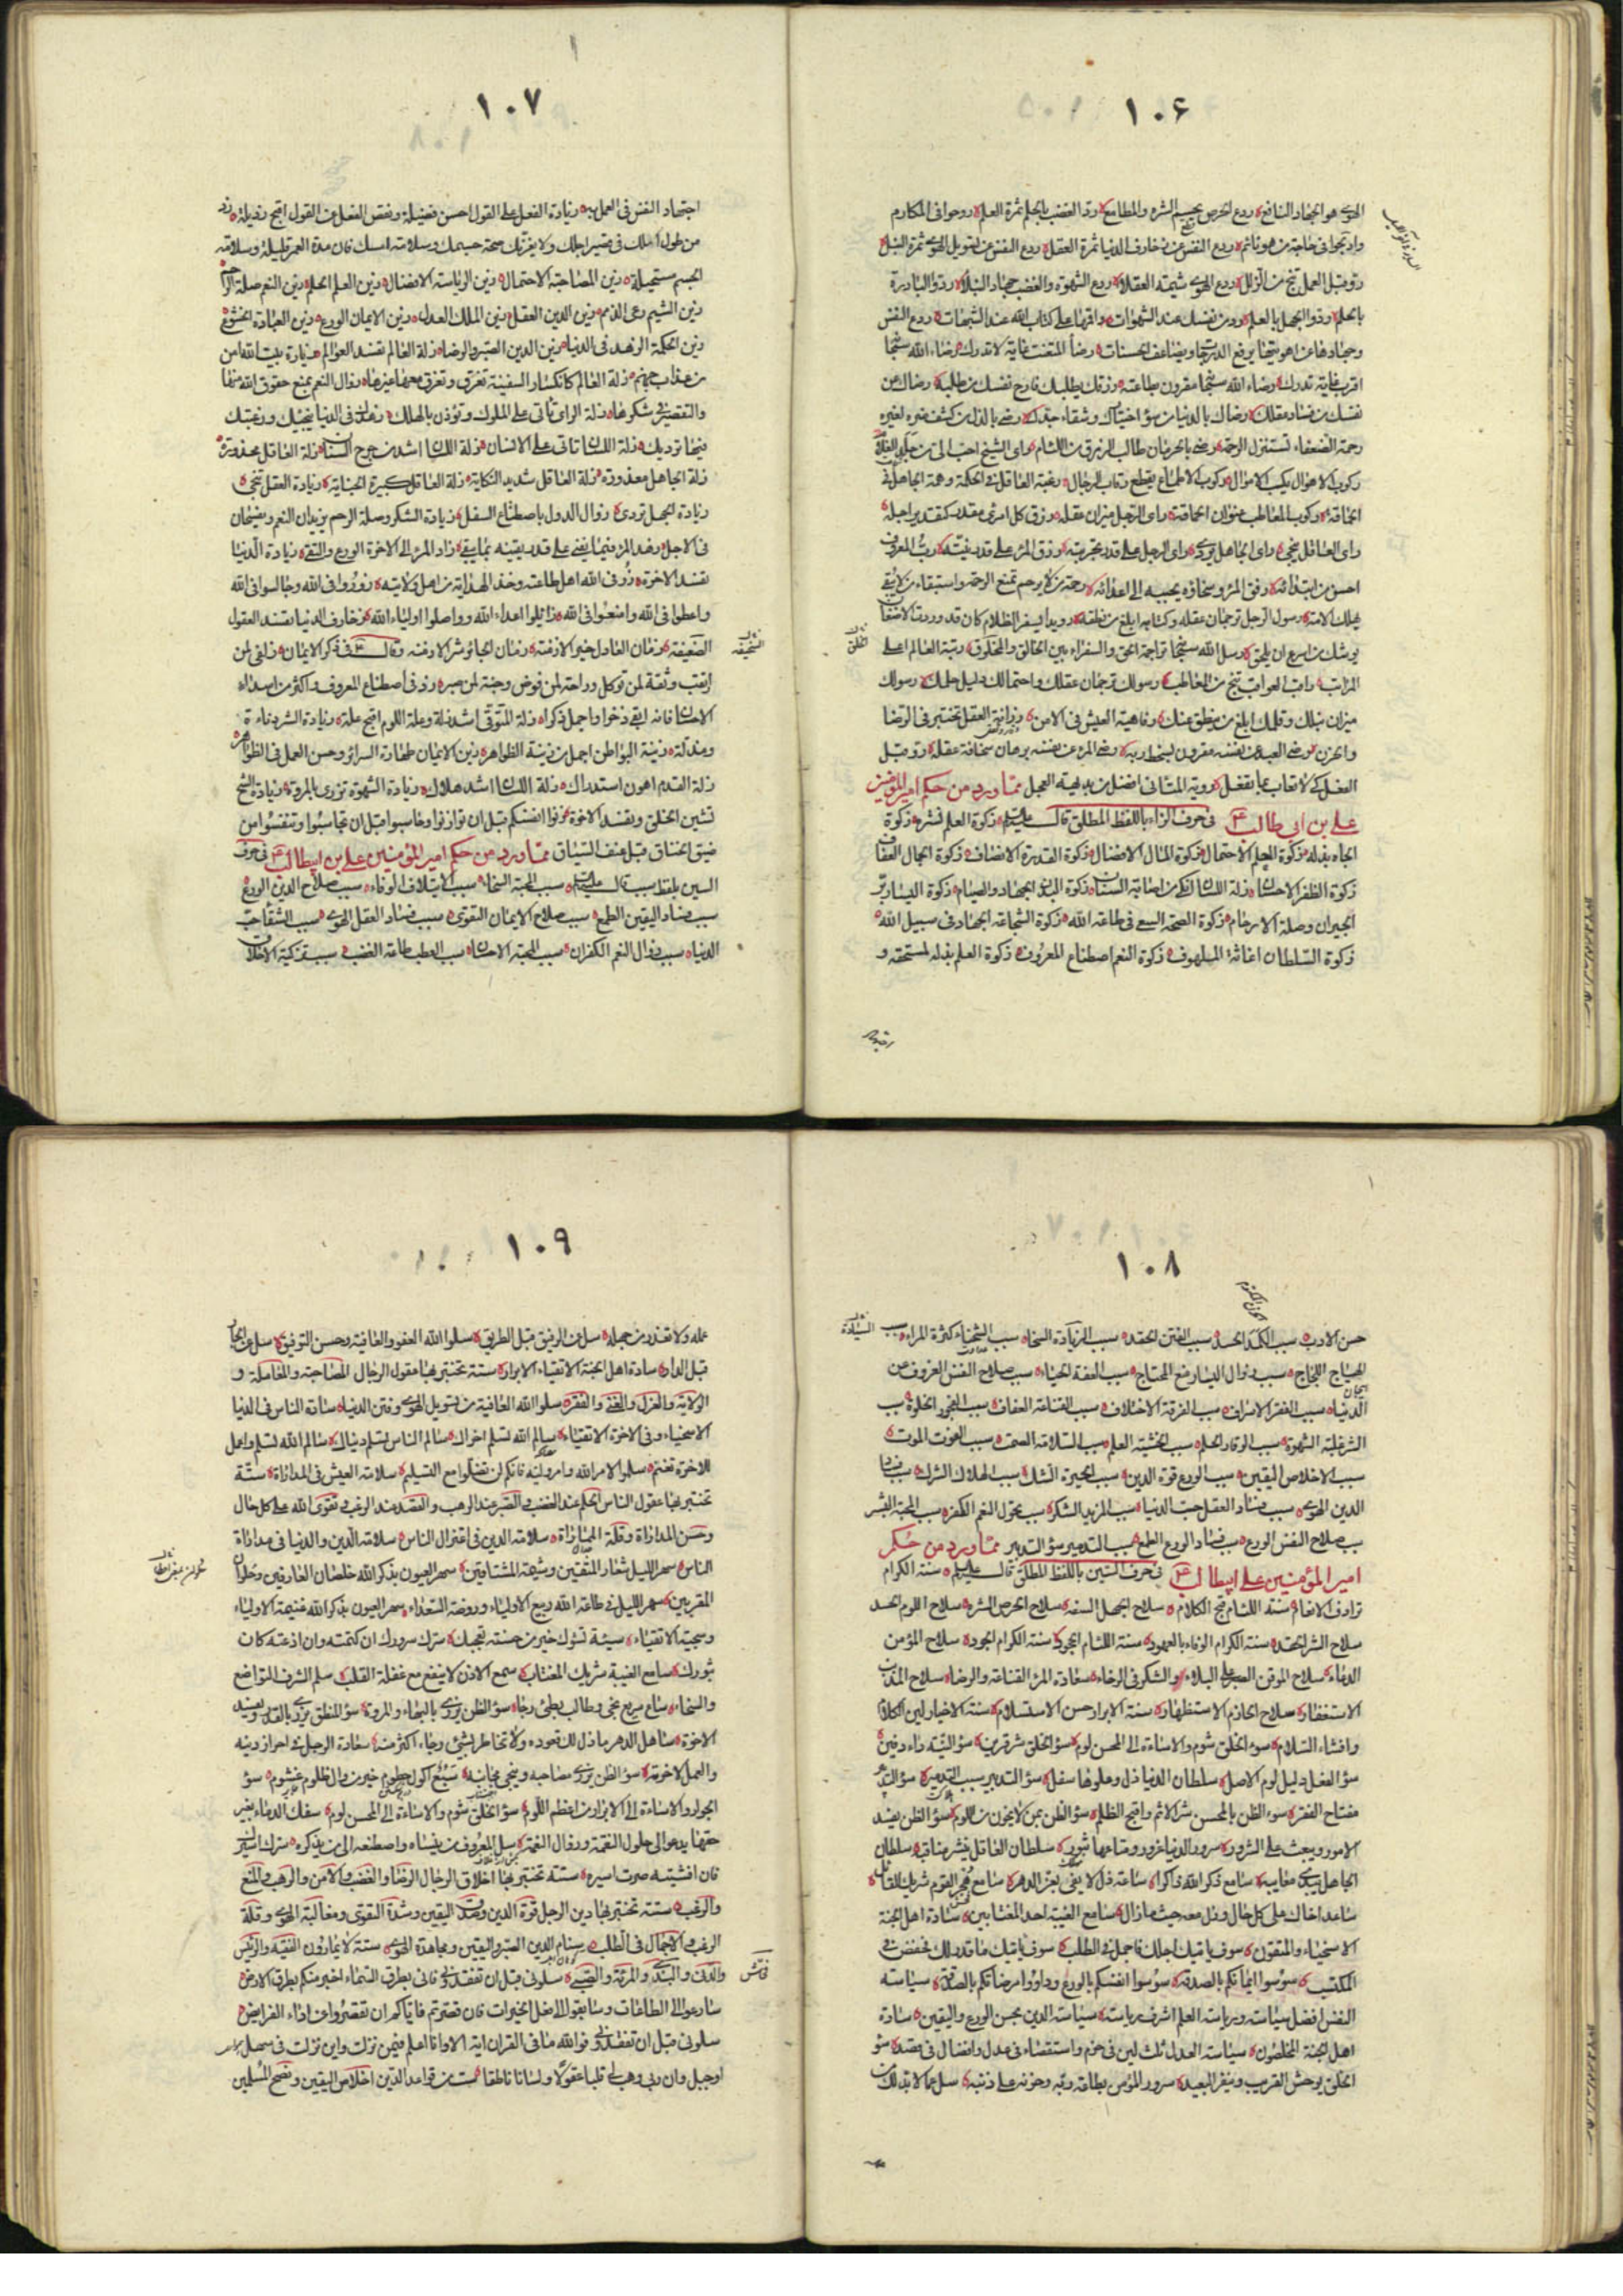 ١٠۶
الهوى هو الجهاد النافع ردع الحرص يحسم الشره والمطامع رد الغضب بالحلم ثمرة العلم روحوا في المكارم
وادلجوا في حاجة من هو نائم ردع النفس عن زخارف الدنيا ثمرة العقل ردع النفس عن تسويل الهوى ثمرة النبل
رو قبل العمل تنج من الزلل ردع الهوى شيمة العقلاء ردع الشهوة والغضب جهاد النبلاء ردوا البادرة
بالحلم ردوا الجهل بالعلم رد من نفسك عند الشهوات واقمها على كتاب الله عند الشبهات ردع النفس
وجهادها عن اهويتها يرفع الدرجات ويضاعف الحسنات رضا المتعنت غاية لا تدرك رضاء الله سبحانه
اقرب غاية تدرك رضاء الله سبحانه مقرون بطاعته رزقك يطلبك فارح نفسك من طلبه رضاك عن
نفسك من فساد عقلك رضاك بالدنيا من سوء اختيارك وشقاء جدك رضي بالذل من كشف ضره لغيره
رحمة الضعفاء تستنزل الرحمة رضي بالحرمان طالب الرزق من اللئام راى الشيخ احب الى من جلد الغلام
ركوب الاهوال يكسب الاموال ركوب الاطماع يقطع رقاب الرجال رغبة العاقل في الحكمة وهمة الجاهل في
الحماقة ركوب المعاطب عنوان الحماقة راى الرجل ميزان عقله رزق كل امرئ مقدر كتقدير اجله
راى العاقل ينجي راى الجاهل يردي راى الرجل على قدر تجربته رزق المرء على قدر نيته رب المعروف
احسن من ابتدائه رفق المرء وسخاؤه يحببه الى اعدائه رحمة من لا يرحم تمنع الرحمة واستبقاء من لا يبقي
يهلك الامة رسول الرجل ترجمان عقله وكتابه ابلغ من نطقه رويدا يسفر الظلام كان قد وردت الاضعان
يوشك من اسرع ان يلحق رسل الله سبحانه تراجمة الحق والسفراء بين الخالق والمخلوق رتبة العالم اعلى
المراتب راقب العواقب تنج من المعاطب رسولك ترجمان عقلك واحتمالك دليل حلمك رسولك
ميزان نبلك وقلمك ابلغ من ينطق عنك رفاهية العيش في الامن رزانة العقل تختبر في الرضا
والحزن رضي العبد عن نفسه مقرون بسخط ربه رضي المرء عن نفسه برهان سخافة عقله رو قبل
الفعل كي لا تعاب بما تفعل روية المتاني افضل من بديهة العجل مما ورد من حكم امير المؤمنين
على بن ابى طالب ع في حرف الزاء باللفظ المطلق قال عليه السلام زكوة العلم نشره زكوة
الجاه بذله زكوة الحلم الاحتمال زكوة المال الافضال زكوة القدرة الانصاف زكوة الجمال العفاف
زكوة الظفر الاحسان زلة اللسان انكى من اصابة السنان زكوة البدن الجهاد والصيام زكوة اليسار بر
الجيران وصلة الارحام زكوة الصحة السعي في طاعة الله زكوة الشجاعة الجهاد في سبيل الله
زكوة السلطان اغاثة الملهوف زكوة النعم اصطناع المعروف زكوة العلم بذله لمستحقه و
١٠٧
اجتهاد النفس في العمل به زيادة الفعل على القول احسن فضيلة ونقص الفعل عن القول اقبح رذيلة زد
من طول املك في قصير اجلك ولا يغرنك صحة جسمك وسلامة امسك فان مدة العمر قليلة وسلامة
الجسم مستحيلة زين المصاحبة الاحتمال زين الرياسة الافضال زين العلم الحلم زين النعم صلة الرحم
زين الشيم رعي الذمم زين الدين العقل زين الملك العدل زين الايمان الورع زين العبادة الخشوع
زين الحكمة الزهد في الدنيا زين الدين الصبر والرضا زلة العالم تفسد العوالم زيارة بيت الله امن
من عذاب جهنم زلة العالم كانكسار السفينة تغرق وتغرق معها غيرها زوال النعم بمنع حقوق الله منها
والتقصير في شكرها زلة الراى تاتى على الملوك وتؤذن بالهلك زهدك في الدنيا ينجيك ورغبتك
فيها ترديك زلة اللسان تاتى على الانسان زلة اللسان اشد من جرح السنان زلة العاقل محذورة
زلة الجاهل معذورة زلة العاقل شديد النكاية زلة العاقل كبيرة الجناية زيادة العقل تنجي
زيادة الجهل تردي زوال الدول باصطناع السفل زيادة الشكر وصلة الرحم يزيدان النعم ويفسحان
في الاجل زهد المرء فيما يفنى على قدر يقينه بما يبقى زاد المرء الى الاخرة الورع والتقى زيادة الدنيا
تفسد الاخرة زر في الله اهل طاعته وخذ الهداية من اهل ولايته زوروا في الله وجالسوا في الله
واعطوا في الله وامنعوا في الله زايلوا اعداء الله وواصلوا اولياء الله زخارف الدنيا تفسد العقول
الضعيفة زمان العادل خير الازمنة زمان الجائر شر الازمنة وقال ع في ذكر الايمان زلفى لمن
ارتقب وثقة لمن توكل وراحة لمن فوض وجنة لمن صبر زد في اصطناع المعروف واكثر من اسداء
الاحسان فانه ابقى ذخرا واجمل ذكرا زلة المتوقي اشد زلة وعلة اللوم اقبح علة زيادة الشر دناءة
ومذلة زينة البواطن اجمل من زينة الظواهر زين الايمان طهارة السرائر وحسن العمل في الظواهر
زلة القدم اهون استدراك زلة اللسان اشد هلاك زيادة الشهوة تزري بالمروة زيادة الشح
تشين الخلق وتفسد الاخوة زنوا انفسكم قبل ان توازنوا وحاسبوا قبل ان تحاسبوا وتنفسوا من
ضيق الخناق قبل عنف السياق مما ورد من حكم امير المؤمنين على بن ابيطالب ع في حرف
السين بلفظ سبب قال عليه السلام سبب المحبة السخاء سبب الايتلاف الوفاء سبب صلاح الدين الورع
سبب فساد اليقين الطمع سبب صلاح الايمان التقوى سبب فساد العقل الهوى سبب الشقاء حب
الدنيا سبب زوال النعم الكفران سبب المحبة الاحسان سبب العطب طاعة الغضب سبب تزكية الاخلاق
١٠٨
حسن الادب سبب الكمد الحسد سبب الفتن الحقد سبب الزيادة السخاء سبب الشحناء كثرة المراء سبب
الهياج اللجاج سبب زوال اليسار منع المحتاج سبب العفة الحياء سبب صلاح النفس العزوف عن
الدنيا سبب الفقر الاسراف سبب الفرقة الاختلاف سبب القناعة العفاف سبب الفجور الخلوة سبب
الشر غلبة الشهوة سبب الوقار الحلم سبب الخشية العلم سبب السلامة الصمت سبب الفوت الموت
سبب الاخلاص اليقين سبب الورع قوة الدين سبب الحيرة الشك سبب الهلاك الشرك سبب فساد
الدين الهوى سبب فساد العقل حب الدنيا سبب المزيد الشكر سبب تحول النعم الكفر سبب المحبة البشر
سبب صلاح النفس الورع سبب فساد الورع الطمع سبب التدمير سوء التدبير مما ورد من حكم
امير المؤمنين على ابيطالب ع في حرف السين باللفظ المطلق قال عليه السلام سنة الكرام
ترادف الانعام سنة اللئام قبح الكلام سلاح الجهل السفه سلاح الحرص الشره سلاح اللوم الحسد
سلاح الشر الحقد سنة الكرام الوفاء بالعهود سنة اللئام الجحود سنة الكرام الجود سلاح المؤمن
الدعاء سلاح الموقن الصبر على البلاء والشكر في الرخاء سعادة المرء القناعة والرضا سلاح المذنب
الاستغفار سلاح الحازم الاستظهار سنة الابرار حسن الاستسلام سنة الاخيار لين الكلام
وافشاء السلام سوء الخلق شوم والاساءة الى المحسن لوم سوء الخلق شر قرين سوء النية داء دفين
سوء الفعل دليل لوم الاصل سلطان الدنيا ذل وعلوها سفل سوء التدبير سبب التدمير سوء التدبير
مفتاح الفقر سوء الظن بالمحسن شر الاثم واقبح الظلم سوء الظن بمن لا يخون من اللوم سوء الظن يفسد
الامور ويبعث على الشرور سرور الدنيا غرور ومتاعها ثبور سلطان العاقل ينشر مناقبه سلطان
الجاهل يبدي معايبه سامع ذكر الله ذاكر ساعة ذل لا يفي بعز الدهر سامع هجر القوم شريك القائل
ساعد اخاك على كل حال وزل معه حيث ما زال سامع الغيبة احد المغتابين سادة اهل الجنة
الاسخياء والمتقون سوف ياتيك اجلك فاجمل في الطلب سوف ياتيك ما قدر لك فخفض في
المكتسب سوسوا ايمانكم بالصدقة سوسوا انفسكم بالورع وداووا مرضاكم بالصدقة سياسة
النفس افضل سياسة ورياسة العلم اشرف رياسة سياسة الدين بحسن الورع واليقين سادة
اهل الجنة المخلصون سياسة العدل ثلث لين في حزم واستقصاء في عدل وافضال في قصد سوء
الخلق يوحش القريب وينفر البعيد سرور المؤمن بطاعة ربه وحزنه على ذنبه سل عما لا بد لك من
١٠٩
عمله ولا تعذر من جهله سل عن الرفيق قبل الطريق سلوا الله العفو والعافية وحسن التوفيق سل عن الجار
قبل الدار سادة اهل الجنة الاتقياء الابرار ستة تختبر بها عقول الرجال المصاحبة والمعاملة و
الولاية والعزل والغنى والفقر سلوا الله العافية من تسويل الهوى وفتن الدنيا سادة الناس في الدنيا
الاسخياء وفي الاخرة الاتقياء سالم الله تسلم اخراك سالم الناس تسلم دنياك سالم الله تسلم واعمل
للاخرة تغنم سلموا لامر الله وامر وليه فانكم لن تضلوا مع التسليم سلامة العيش في المداراة ستة
تختبر بها عقول الناس الحلم عند الغضب والصبر عند الرهب والقصد عند الرغب وتقوى الله على كل حال
وحسن المداراة وقلة المماراة سلامة الدين في اعتزال الناس سلامة الدين والدنيا في مداراة
الناس سهر الليل شعار المتقين وشيمة المشتاقين سهر العيون بذكر الله خلصان العارفين وحلوان
المقربين سهر الليل في طاعة الله ربيع الاولياء وروضة السعداء سهر العيون بذكر الله غنيمة الاولياء
وسجية الاتقياء سيئة تسوءك خير من حسنة تعجبك سرك سرورك ان كتمته وان اذعته كان
ثبورك سامع الغيبة شريك المغتاب سمع الاذن لا ينفع مع غفلة القلب سلم الشرف التواضع
والسخاء ساع سريع نجى وطالب بطئ رجا سوء الظن يزري بالبهاء والمروة سوء المنطق يزري بالقدر ويفسد
الاخوة ساهل الدهر ما ذل لك قعوده ولا تخاطر بشيء رجاء اكثر منه سعادة الرجل في احراز دينه
والعمل لاخرته سوء الظن يردي مصاحبه وينجي مجانبه سبع اكول حطوم خير من وال ظلوم غشوم سوء
الجوار والاساءة الى الابرار من اعظم اللوم سوء الخلق شوم والاساءة الى المحسن لوم سفك الدماء بغير
حقها يدعو الى حلول النقمة وزوال النعمة سل المعروف من ينساه واصطنعه الى من يذكره سرك اسيرك
فان افشيته صرت اسيره ستة تختبر بها اخلاق الرجال الرضا والغضب والامن والرهب والمنع
والرغب ستة تختبر بها دين الرجل قوة الدين وصدق اليقين وشدة التقوى ومغالبة الهوى وقلة
الرغب والاجمال في الطلب سنام الدين الصبر واليقين ومجاهدة الهوى ستة لا يمارون الفقيه والرئيس
والدني والبذي والمرئة والصبي سلوني قبل ان تفقدوني فاني بطرق السماء اخبر منكم بطرق الارض
سارعوا الى الطاعات وسابقوا الى فعل الخيرات فان قصرتم فاياكم ان تقصروا عن اداء الفرايض
سلوني قبل ان تفقدوني فوالله ما في القران اية الا وانا اعلم فيمن نزلت واين نزلت في سهل
او جبل وان ربي وهب لي قلبا عقولا ولسانا ناطقا ست من قواعد الدين اخلاص اليقين ونصح المسلمين